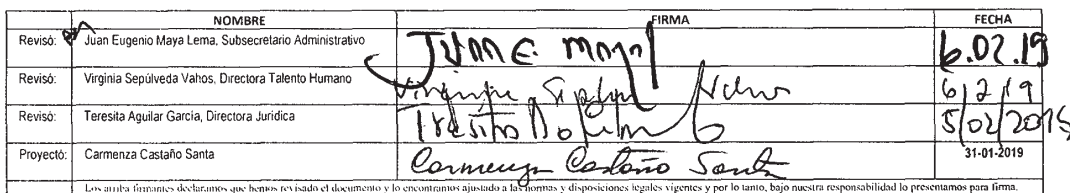 NOMBRE FIRMA FECHA
Revisó: Juan Eugenio Maya Lema, Subsecretario Administrativo Juan E. Maya L 6.02.19
Revisó: Virginia Sepúlveda Vahos, Directora Talento Humano Virginia Sepúlveda Vahos 6/2/19
Revisó: Teresita Aguilar García, Directora Jurídica Teresita Aguilar G 5/02/2019
Proyectó: Carmenza Castaño Santa Carmenza Castaño Santa 31-01-2019
Los arriba firmantes declaramos que hemos revisado el documento y lo encontramos ajustado a las normas y disposiciones legales vigentes y por lo tanto, bajo nuestra responsabilidad lo presentamos para firma.